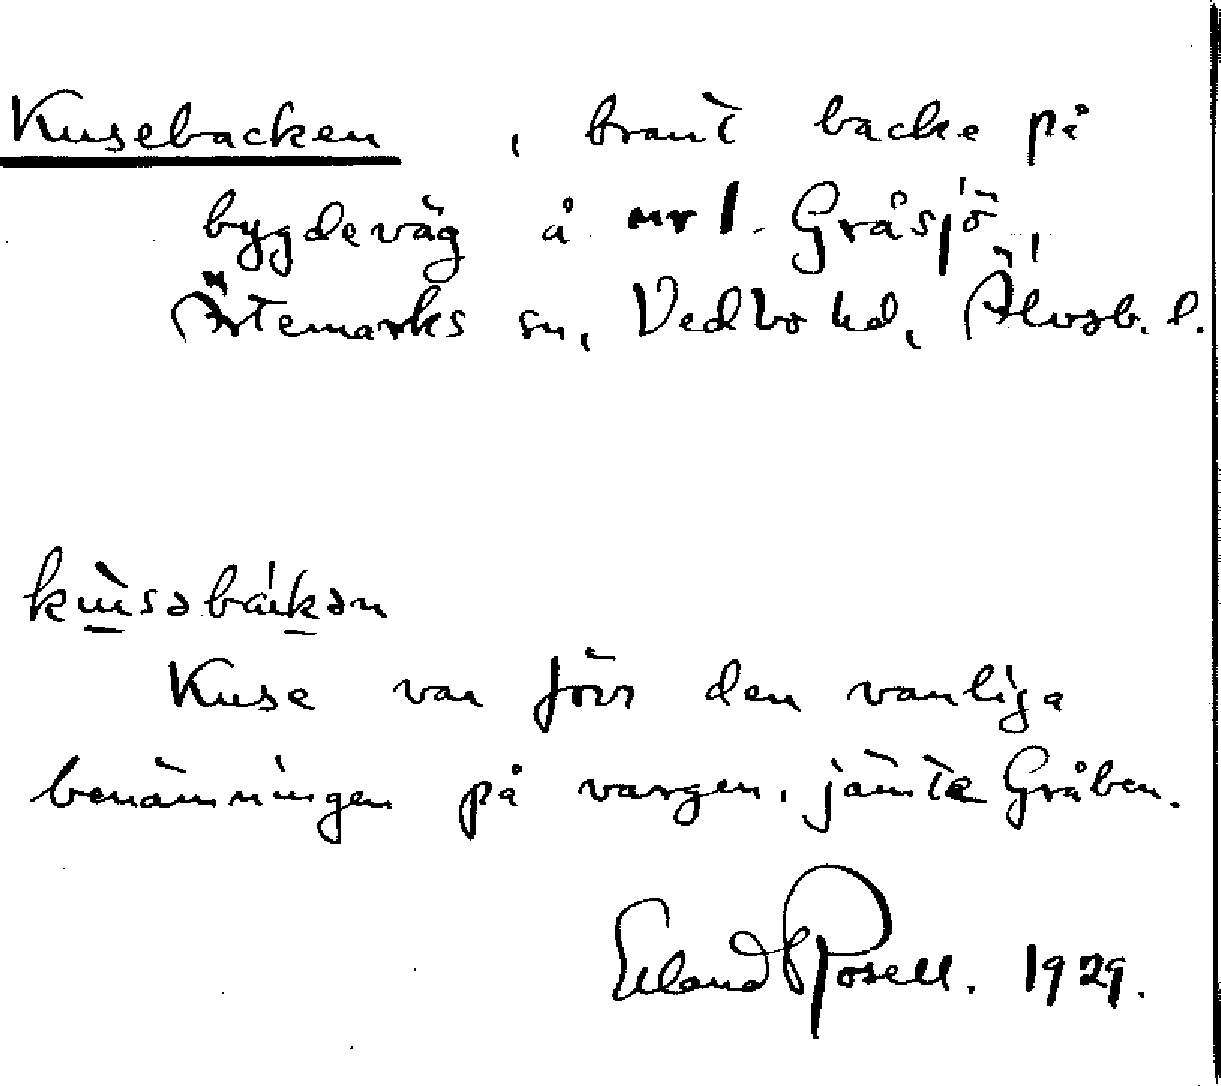 Kusebacken, brant backe på
bygdeväg å nr 1. Gråsjö,
Ärtemarks sn, Vedbo hd, Älvsb. l.
kùsəbákən
Kuse var förr den vanliga
benämningen på vargen, jämte Gråben.
Erland Rosell. 1929.